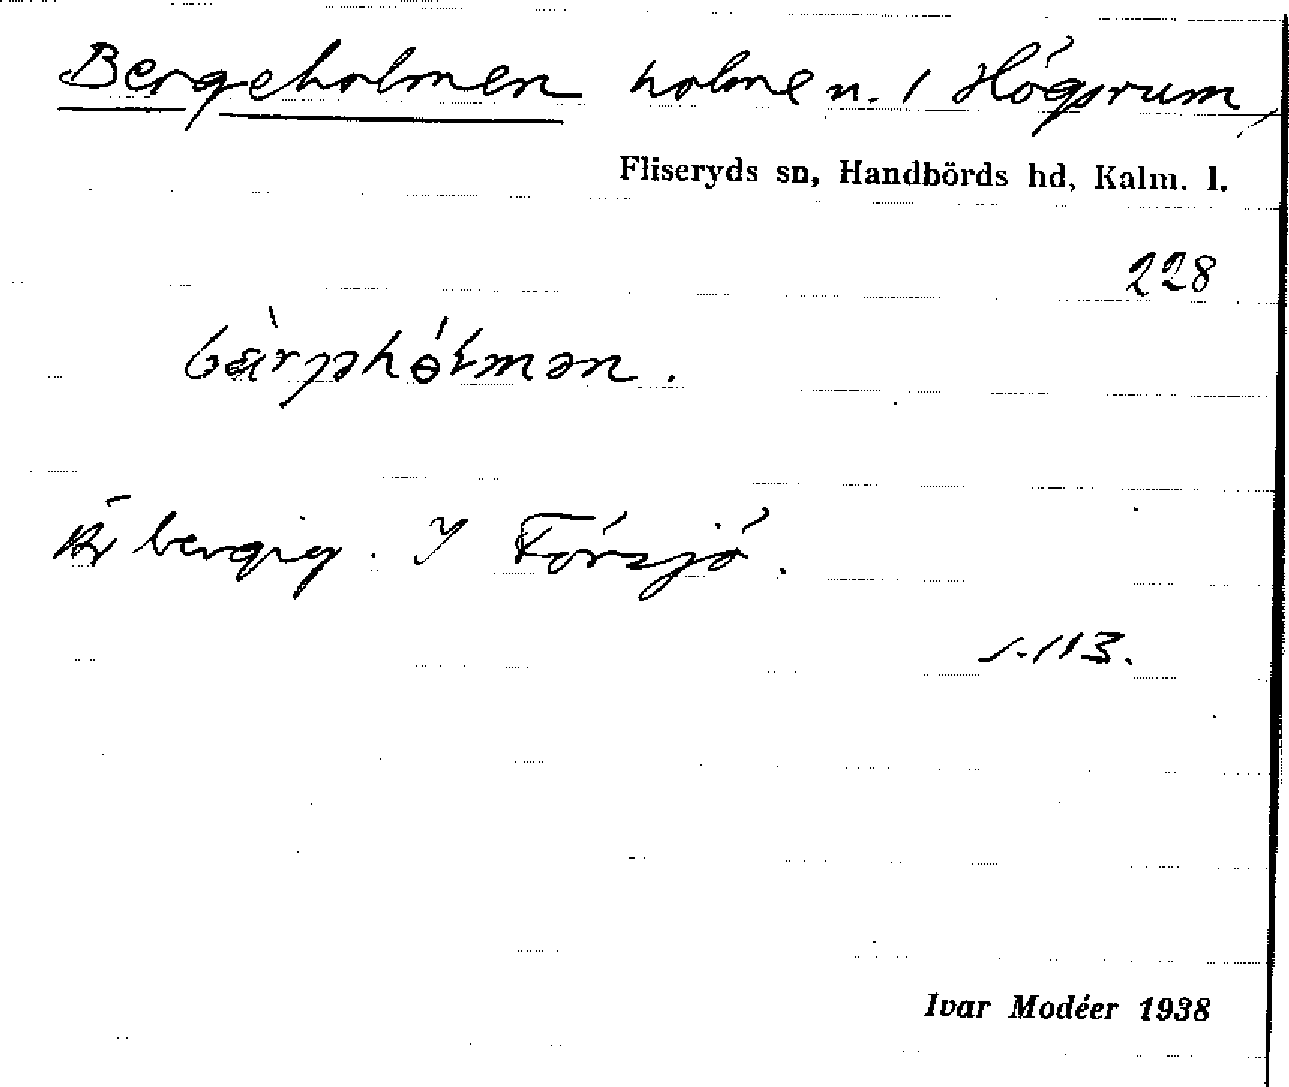 Bergeholmen holme n. / Högsrum,
Fliseryds sn, Handbörds hd, Kalm. l.
228
Är bergig. I Försjö.
s. 113.
Ivar Modéer 1938